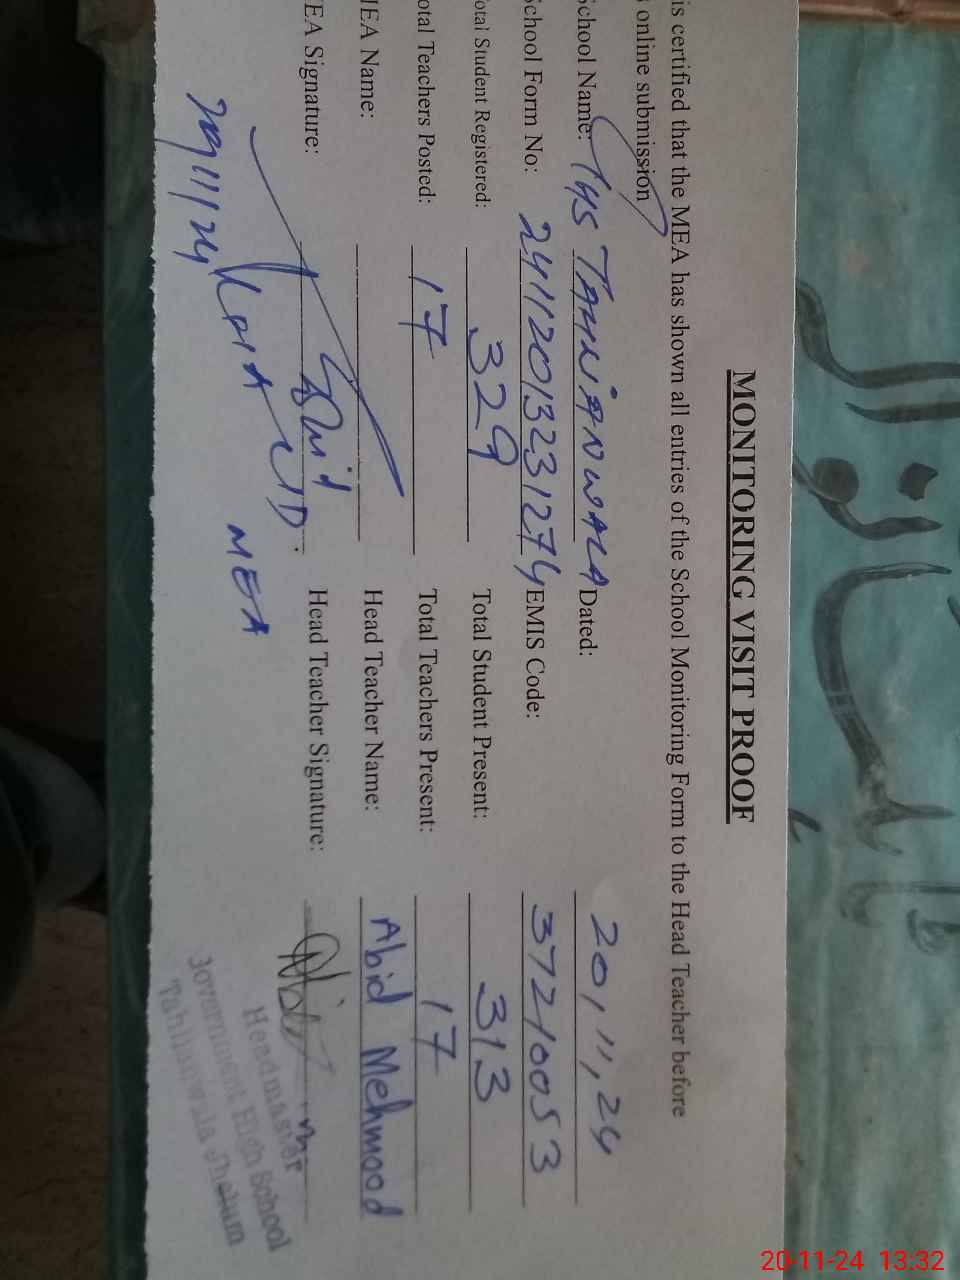 MONITORING VISIT PROOF
is certified that the MEA has shown all entries of the School Monitoring Form to the Head Teacher before
online submission
School Name: GHS TAHLIANWALA Dated: 20,11,24
School Form No: 24112013231274 EMIS Code: 37210053
Total Student Registered: 329 Total Student Present: 313
Total Teachers Posted: 17 Total Teachers Present: 17
MEA Name: Head Teacher Name: Abid Mehmood
MEA Signature: Head Teacher Signature:
MEA
20/11/24
Headmaster
Government High School
Tahlianwala Jhelum
20-11-24 13:32